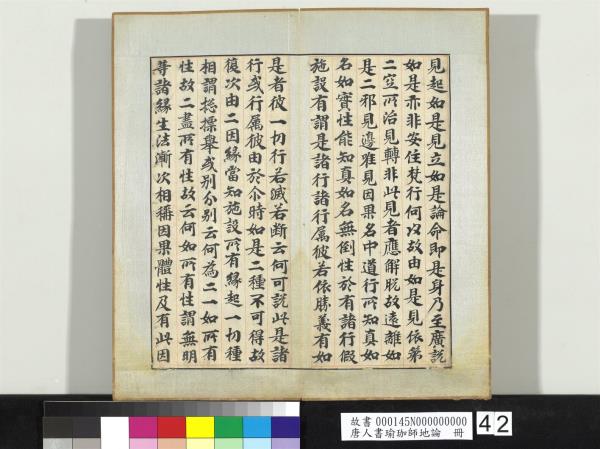 見起如是見立如是論命即是身乃至廣說
如是亦非安住梵行何以故由如是見依第
二空所治見轉非此見者應解脫故遠離如
是二邪見邊唯見因果名中道行所知真如
名如實性能知真如名無倒性於有諸行假
施設有謂是諸行諸行属彼若依勝義有如
是者彼一切行若滅若断云何可說此是諸
行或行属彼由於尒時如是二種不可得故
復次由二因緣當知施設所有緣起一切種
相謂捴摽舉或別分別云何為二一如所有
性故二盡所有性故云何如所有性謂無明
等諸緣生法漸次相稱因果體性及有此因
故書 000145N000000000
唐人書瑜珈師地論 冊
42